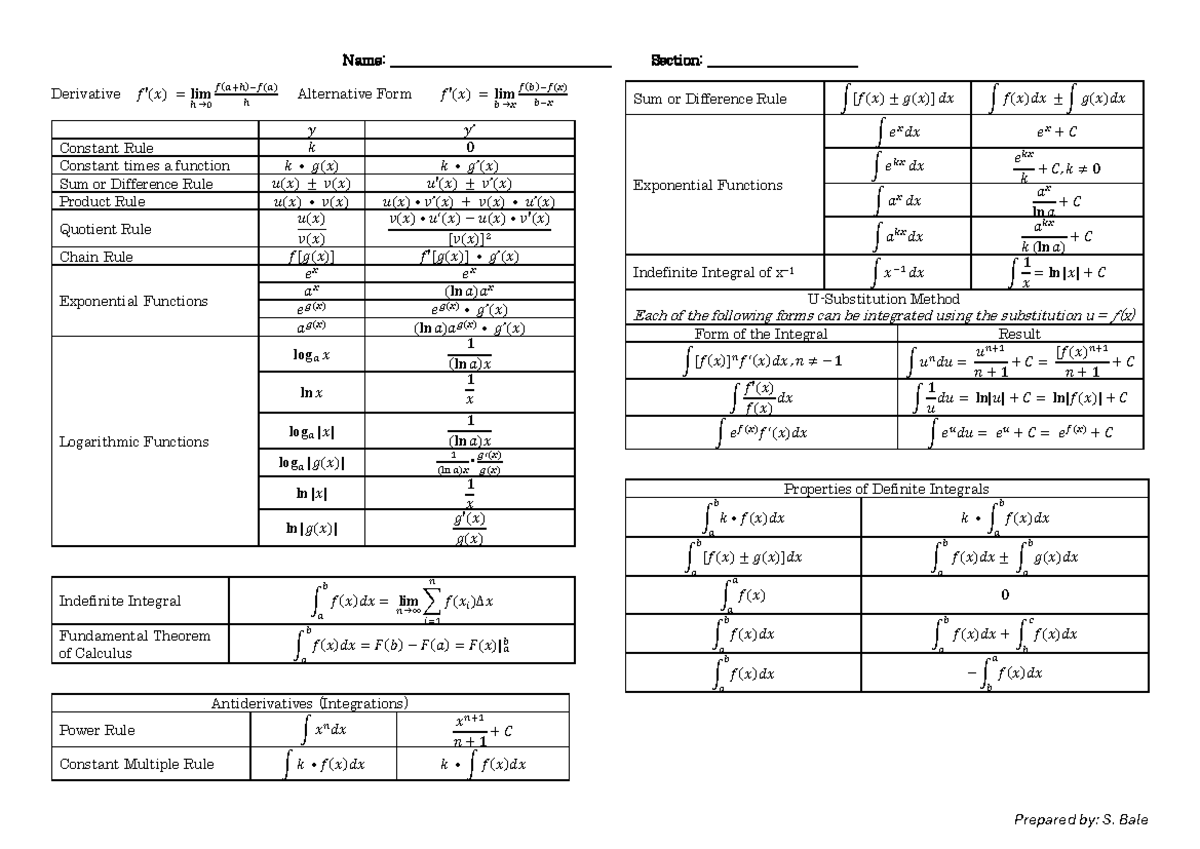 Name: ______________________ Section: _______________
Derivative f'(x) = lim h→0 f(a+h)−f(a) / h Alternative Form f'(x) = lim b→x f(b)−f(x) / b−x
y y′
Constant Rule k 0
Constant times a function k • g(x) k • g′(x)
Sum or Difference Rule u(x) ± v(x) u'(x) ± v′(x)
Product Rule u(x) • v(x) u(x) • v′(x) + v(x) • u′(x)
Quotient Rule u(x) / v(x) v(x) • u′(x) − u(x) • v'(x) / [v(x)]²
Chain Rule f[g(x)] f'[g(x)] • g′(x)
Exponential Functions
eˣ eˣ
aˣ (ln a)aˣ
e^g(x) e^g(x) • g′(x)
a^g(x) (ln a)a^g(x) • g′(x)
Logarithmic Functions
logₐ x 1 / (ln a)x
ln x 1 / x
logₐ |x| 1 / (ln a)x
logₐ |g(x)| 1 / (ln a)x • g′(x) / g(x)
ln |x| 1 / x
ln |g(x)| g'(x) / g(x)
Indefinite Integral ∫ₐᵇ f(x)dx = lim n→∞ ∑ i=1 n f(xᵢ)Δx
Fundamental Theorem
of Calculus ∫ₐᵇ f(x)dx = F(b) − F(a) = F(x)|ₐᵇ
Antiderivatives (Integrations)
Power Rule ∫ xⁿdx xⁿ⁺¹ / n + 1 + C
Constant Multiple Rule ∫ k • f(x)dx k • ∫ f(x)dx
Sum or Difference Rule ∫[f(x) ± g(x)] dx ∫ f(x)dx ± ∫ g(x)dx
Exponential Functions
∫ eˣdx eˣ + C
∫ e^kx dx e^kx / k + C, k ≠ 0
∫ aˣ dx aˣ / ln a + C
∫ a^kx dx a^kx / k (ln a) + C
Indefinite Integral of x⁻¹ ∫ x⁻¹ dx ∫ 1 / x = ln |x| + C
U-Substitution Method
Each of the following forms can be integrated using the substitution u = f(x)
Form of the Integral Result
∫[f(x)]ⁿ f′(x)dx , n ≠ −1 ∫ uⁿdu = uⁿ⁺¹ / n + 1 + C = [f(x)ⁿ⁺¹ / n + 1 + C
∫ f'(x) / f(x) dx ∫ 1 / u du = ln|u| + C = ln|f(x)| + C
∫ e^f(x) f′(x)dx ∫ eᵘdu = eᵘ + C = e^f(x) + C
Properties of Definite Integrals
∫ₐᵇ k • f(x)dx k • ∫ₐᵇ f(x)dx
∫ₐᵇ [f(x) ± g(x)]dx ∫ₐᵇ f(x)dx ± ∫ₐᵇ g(x)dx
∫ₐᵃ f(x) 0
∫ₐᵇ f(x)dx ∫ₐᵇ f(x)dx + ∫_b^c f(x)dx
∫ₐᵇ f(x)dx − ∫_b^a f(x)dx
Prepared by: S. Bale